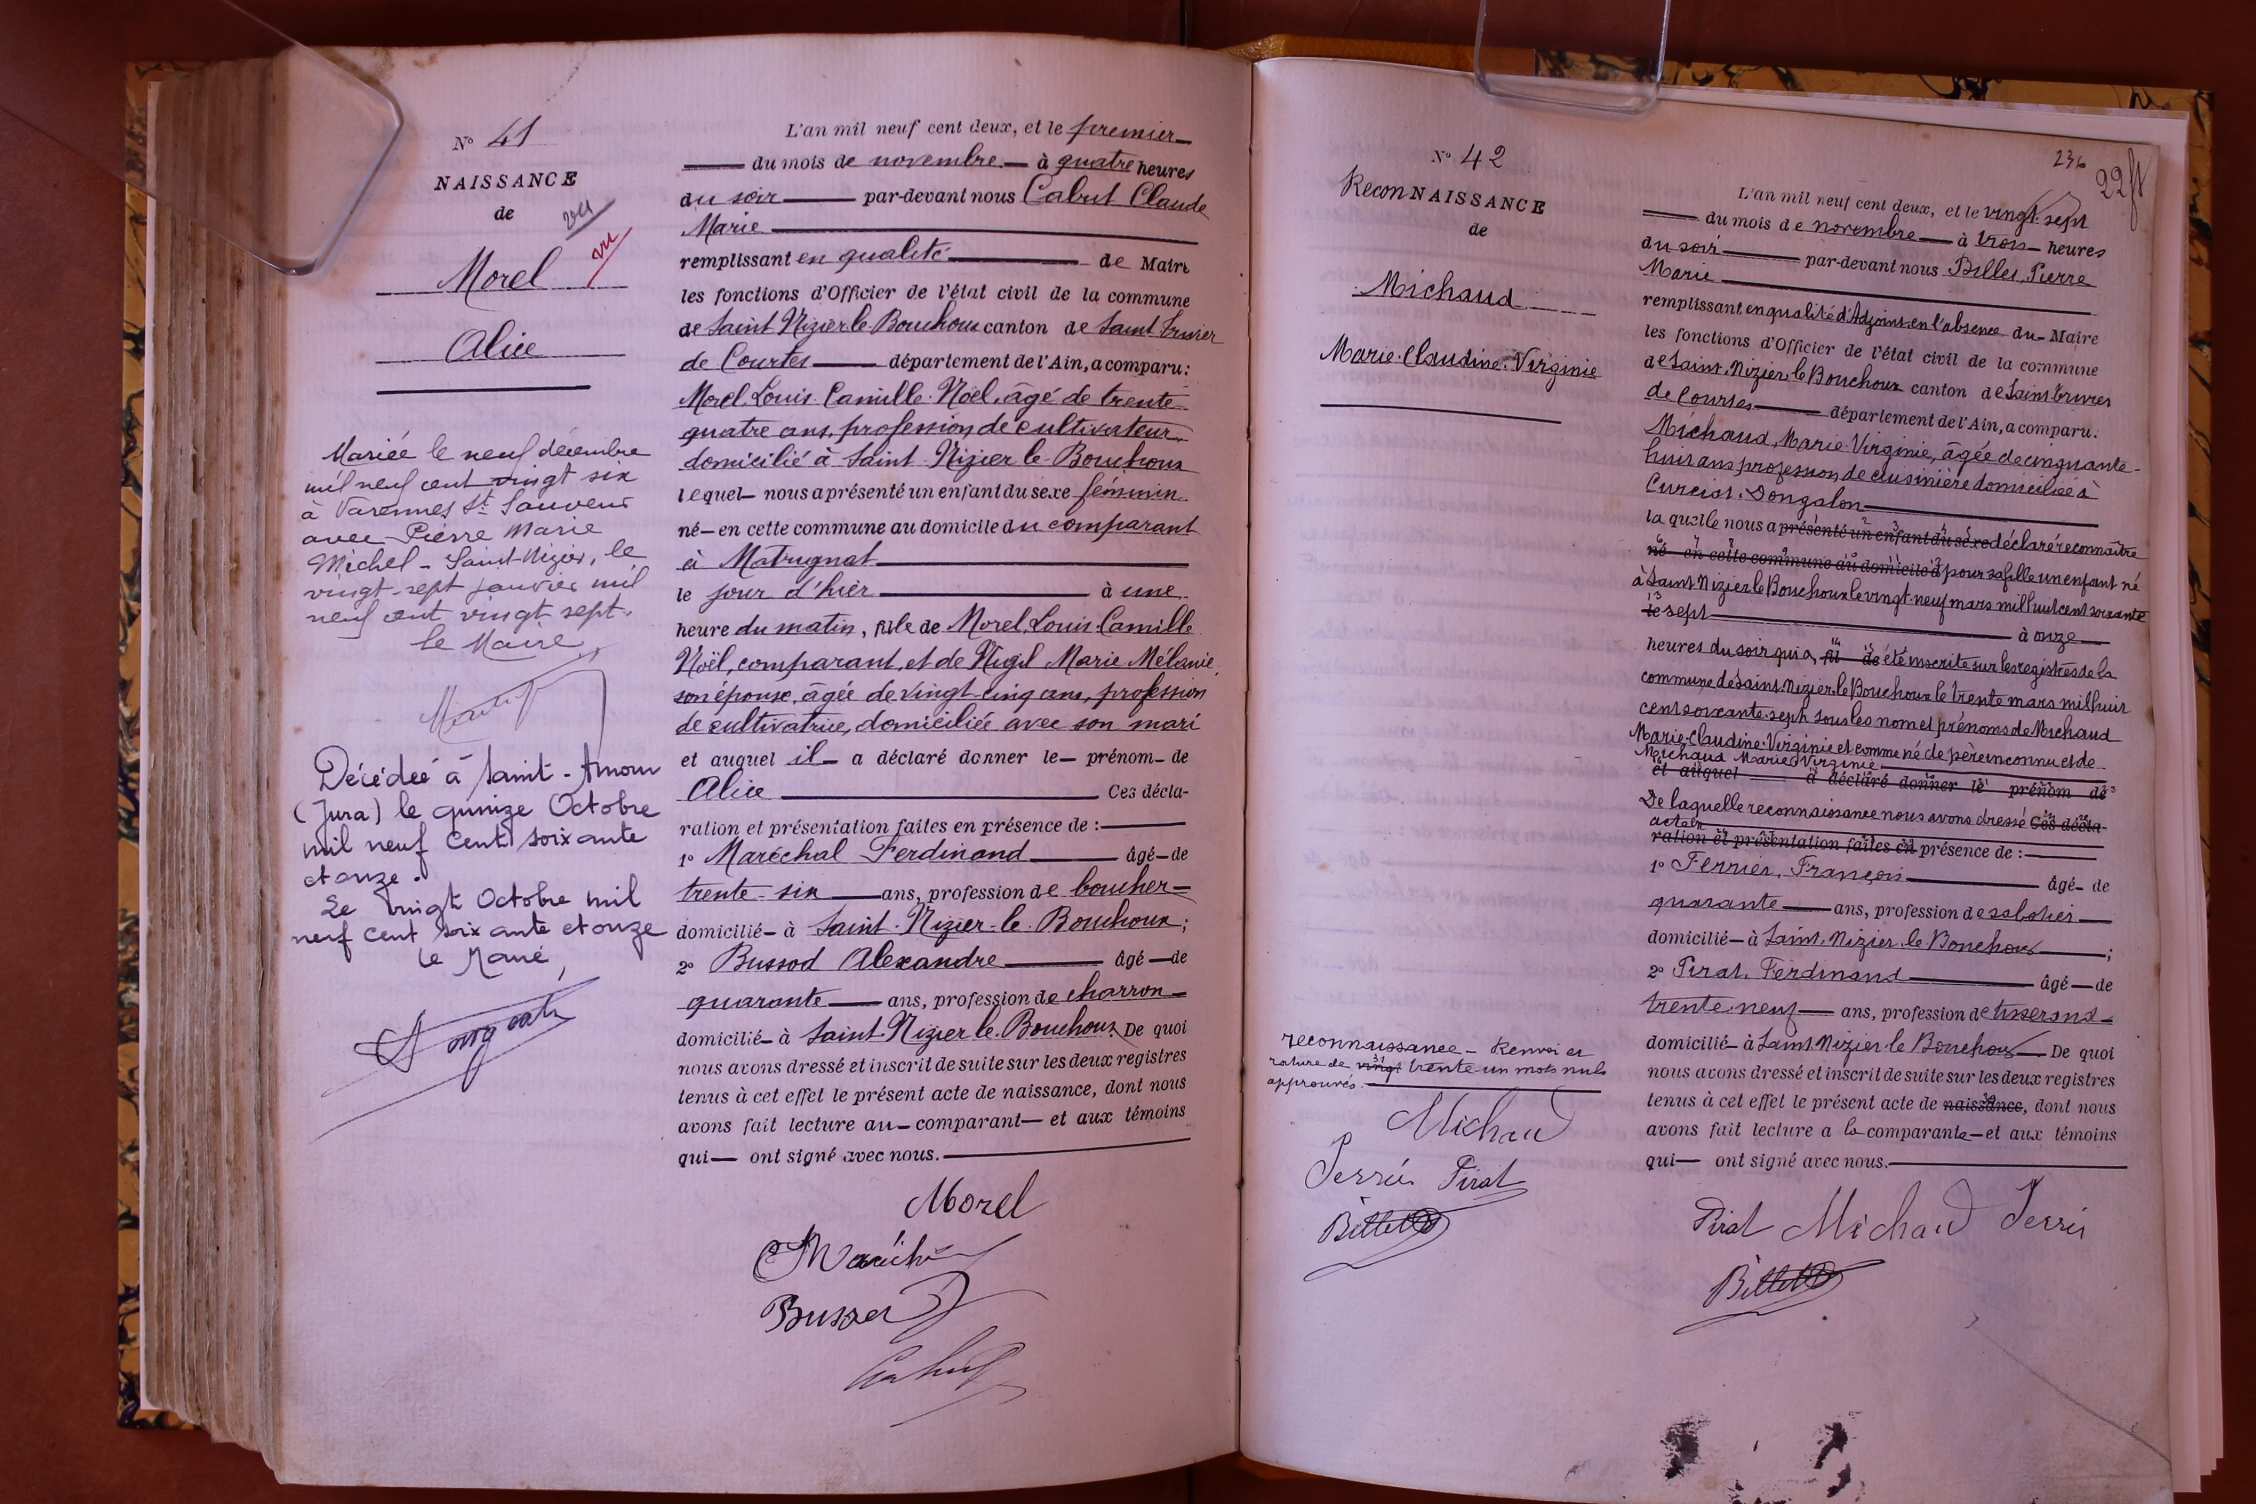 N° 41
NAISSANCE
de
vu
vu
Morel
Alice
Mariée le neuf décembre
mil neuf cent vingt six
à Varennes St. Sauveur
avec Pierre Marie
Michel - Saint-Nizier, le
vingt-sept janvier mil
neuf cent vingt sept.
Le Maire
Décédée à Saint-Amour
(Jura) le quinze Octobre
mil neuf cent soixante
et onze.
Le vingt Octobre mil
neuf cent soixante et onze
Le Maire,
L'an mil neuf cent deux, et le premier
du mois de novembre à quatre heures
du soir par-devant nous Cabut Claude
Marie
remplissant en qualité de Maire
les fonctions d'Officier de l'état civil de la commune
de Saint Nizier le Bouchoux canton de Saint Trivier
de Courtes département de l'Ain, a comparu:
Morel Louis Camille Noël, âgé de trente
quatre ans, profession de cultivateur
domicilié à Saint-Nizier le Bouchoux
lequel nous a présenté un enfant du sexe féminin
né en cette commune au domicile du comparant
à Matrugnat
le jour d'hier à une
heure du matin, fille de Morel Louis Camille
Noël, comparant, et de Vugil Marie Mélanie
son épouse, âgée de vingt-cinq ans, profession
de cultivatrice, domiciliée avec son mari
et auquel il a déclaré donner le prénom de
Alice Ces décla-
ration et présentation faites en présence de :
1° Maréchal Ferdinand âgé de
trente-six ans, profession de boucher
domicilié à Saint-Nizier-le-Bouchoux;
2° Bussod Alexandre âgé de
quarante ans, profession de charron
domicilié à Saint-Nizier le Bouchoux De quoi
nous avons dressé et inscrit de suite sur les deux registres
tenus à cet effet le présent acte de naissance, dont nous
avons fait lecture au comparant et aux témoins
qui ont signé avec nous.
Morel
Maréchal
Bussod
Cabut
N° 42
ReconNAISSANCE
de
Michaud
Marie-Claudine-Virginie
reconnaissance - Renvoi et
rature de vingt trente-un mots nuls
approuvés.
Michaud
Perrier Pirat
Billet
236
22
L'an mil neuf cent deux, et le vingt-sept
du mois de novembre à trois heures
du soir par-devant nous Billet Pierre
Marie
remplissant en qualité d'Adjoint en l'absence du Maire
les fonctions d'Officier de l'état civil de la commune
de Saint-Nizier-le Bouchoux canton de Saint Trivier
de Courtes département de l'Ain, a comparu:
Michaud, Marie-Virginie, âgée de cinquante-
huit ans profession de cuisinière domiciliée à
Curciat-Dongalon
laquelle nous a présenté un enfant du sexe déclaré reconnaître
né en cette commune au domicile d pour sa fille un enfant né
à Saint Nizier le Bouchoux le vingt-neuf mars mil huit cent soixante
le sept à onze
heures du soir qui a, fil de été inscrite sur les registres de la
commune de Saint-Nizier le Bouchoux le trente mars mil huit
cent soixante-sept sous les nom et prénoms de Michaud
Marie-Claudine-Virginie et comme né de père inconnu et de
Michaud Marie Virginie
et auquel a déclaré donner le prénom de
De laquelle reconnaissance nous avons dressé Ces décla-
acte en
ration et présentation faites en présence de :
1° Ferrier, François âgé de
quarante ans, profession de sabotier
domicilié à Saint-Nizier-le Bouchoux;
2° Pirat, Ferdinand âgé de
trente-neuf ans, profession de tisserand
domicilié à Saint-Nizier le Bouchoux De quoi
nous avons dressé et inscrit de suite sur les deux registres
tenus à cet effet le présent acte de naissance, dont nous
avons fait lecture a la comparante et aux témoins
qui ont signé avec nous.
Pirat Michaud Ferrier
Billet